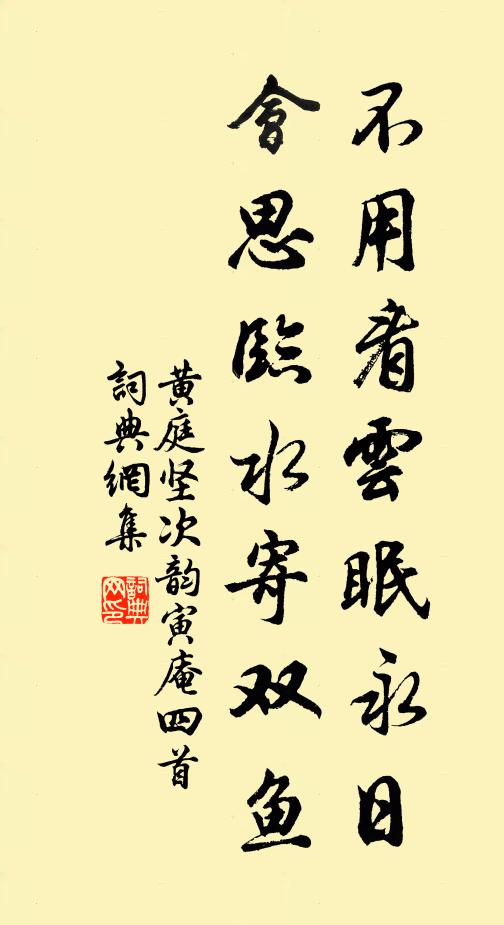 不用看雲眠永日
會思臨水寄双鱼
黄庭坚次韵寅庵四首
詞典網集
詞典网印